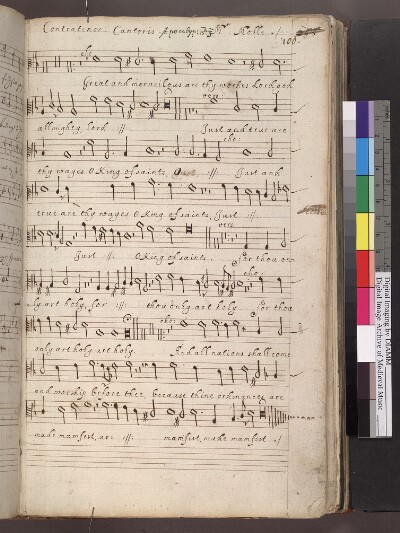 Contratenor Cantoris Apocalyps Mr Molle
100
cho:
Great and mervelous are thy workes Lord god
vers:
allmighty, lord :||: Just and true are
cho:
thy wayes O King of saints, :||: Just and
true are thy wayes O King of saints, Just :||:
vers
Just :||: O King of saints. for thou on
cho:
ly art holy, for :||: thou only art holy for thou
cho:
only art holy art holy. And all nations shall come
and worship before thee, because thine ordinances are
make manifest, are :||: manifest, made manifest
Digital imaging by DIAMM
Digital Image Archive of Medieval Music